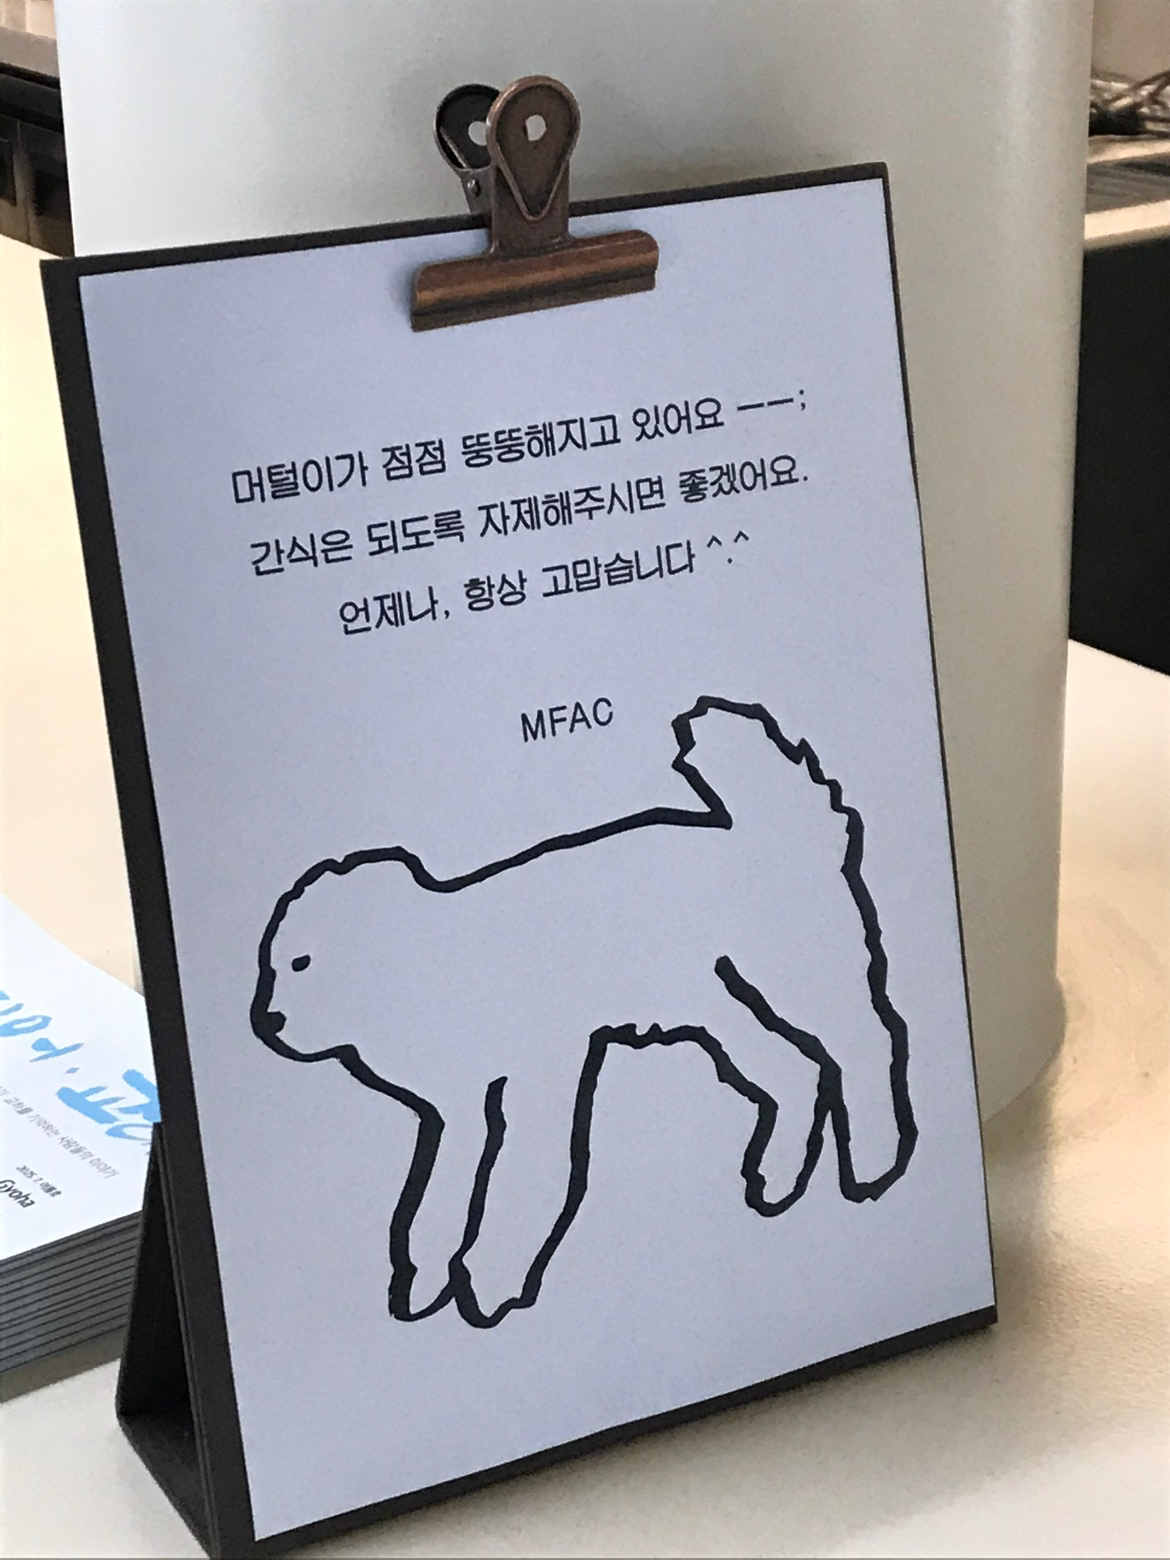 머털이가 점점 뚱뚱해지고 있어요 ㅡㅡ;
간식은 되도록 자제해주시면 좋겠어요.
언제나, 항상 고맙습니다 ^.^
MFAC